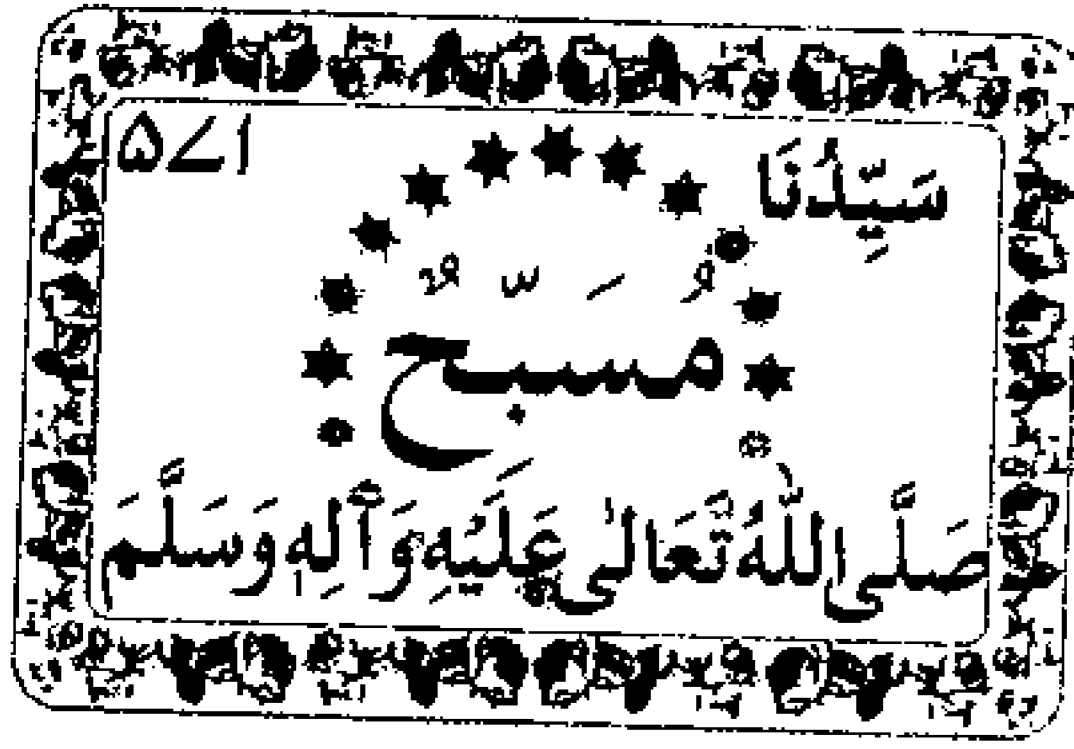 سَيِّدُنَا ۵۷۱
مُسَبّحٌ
صَلَّى اللّٰهُ تَعَالٰى عَلَيْهِ وَآلِهٖ وَسَلَّمَ